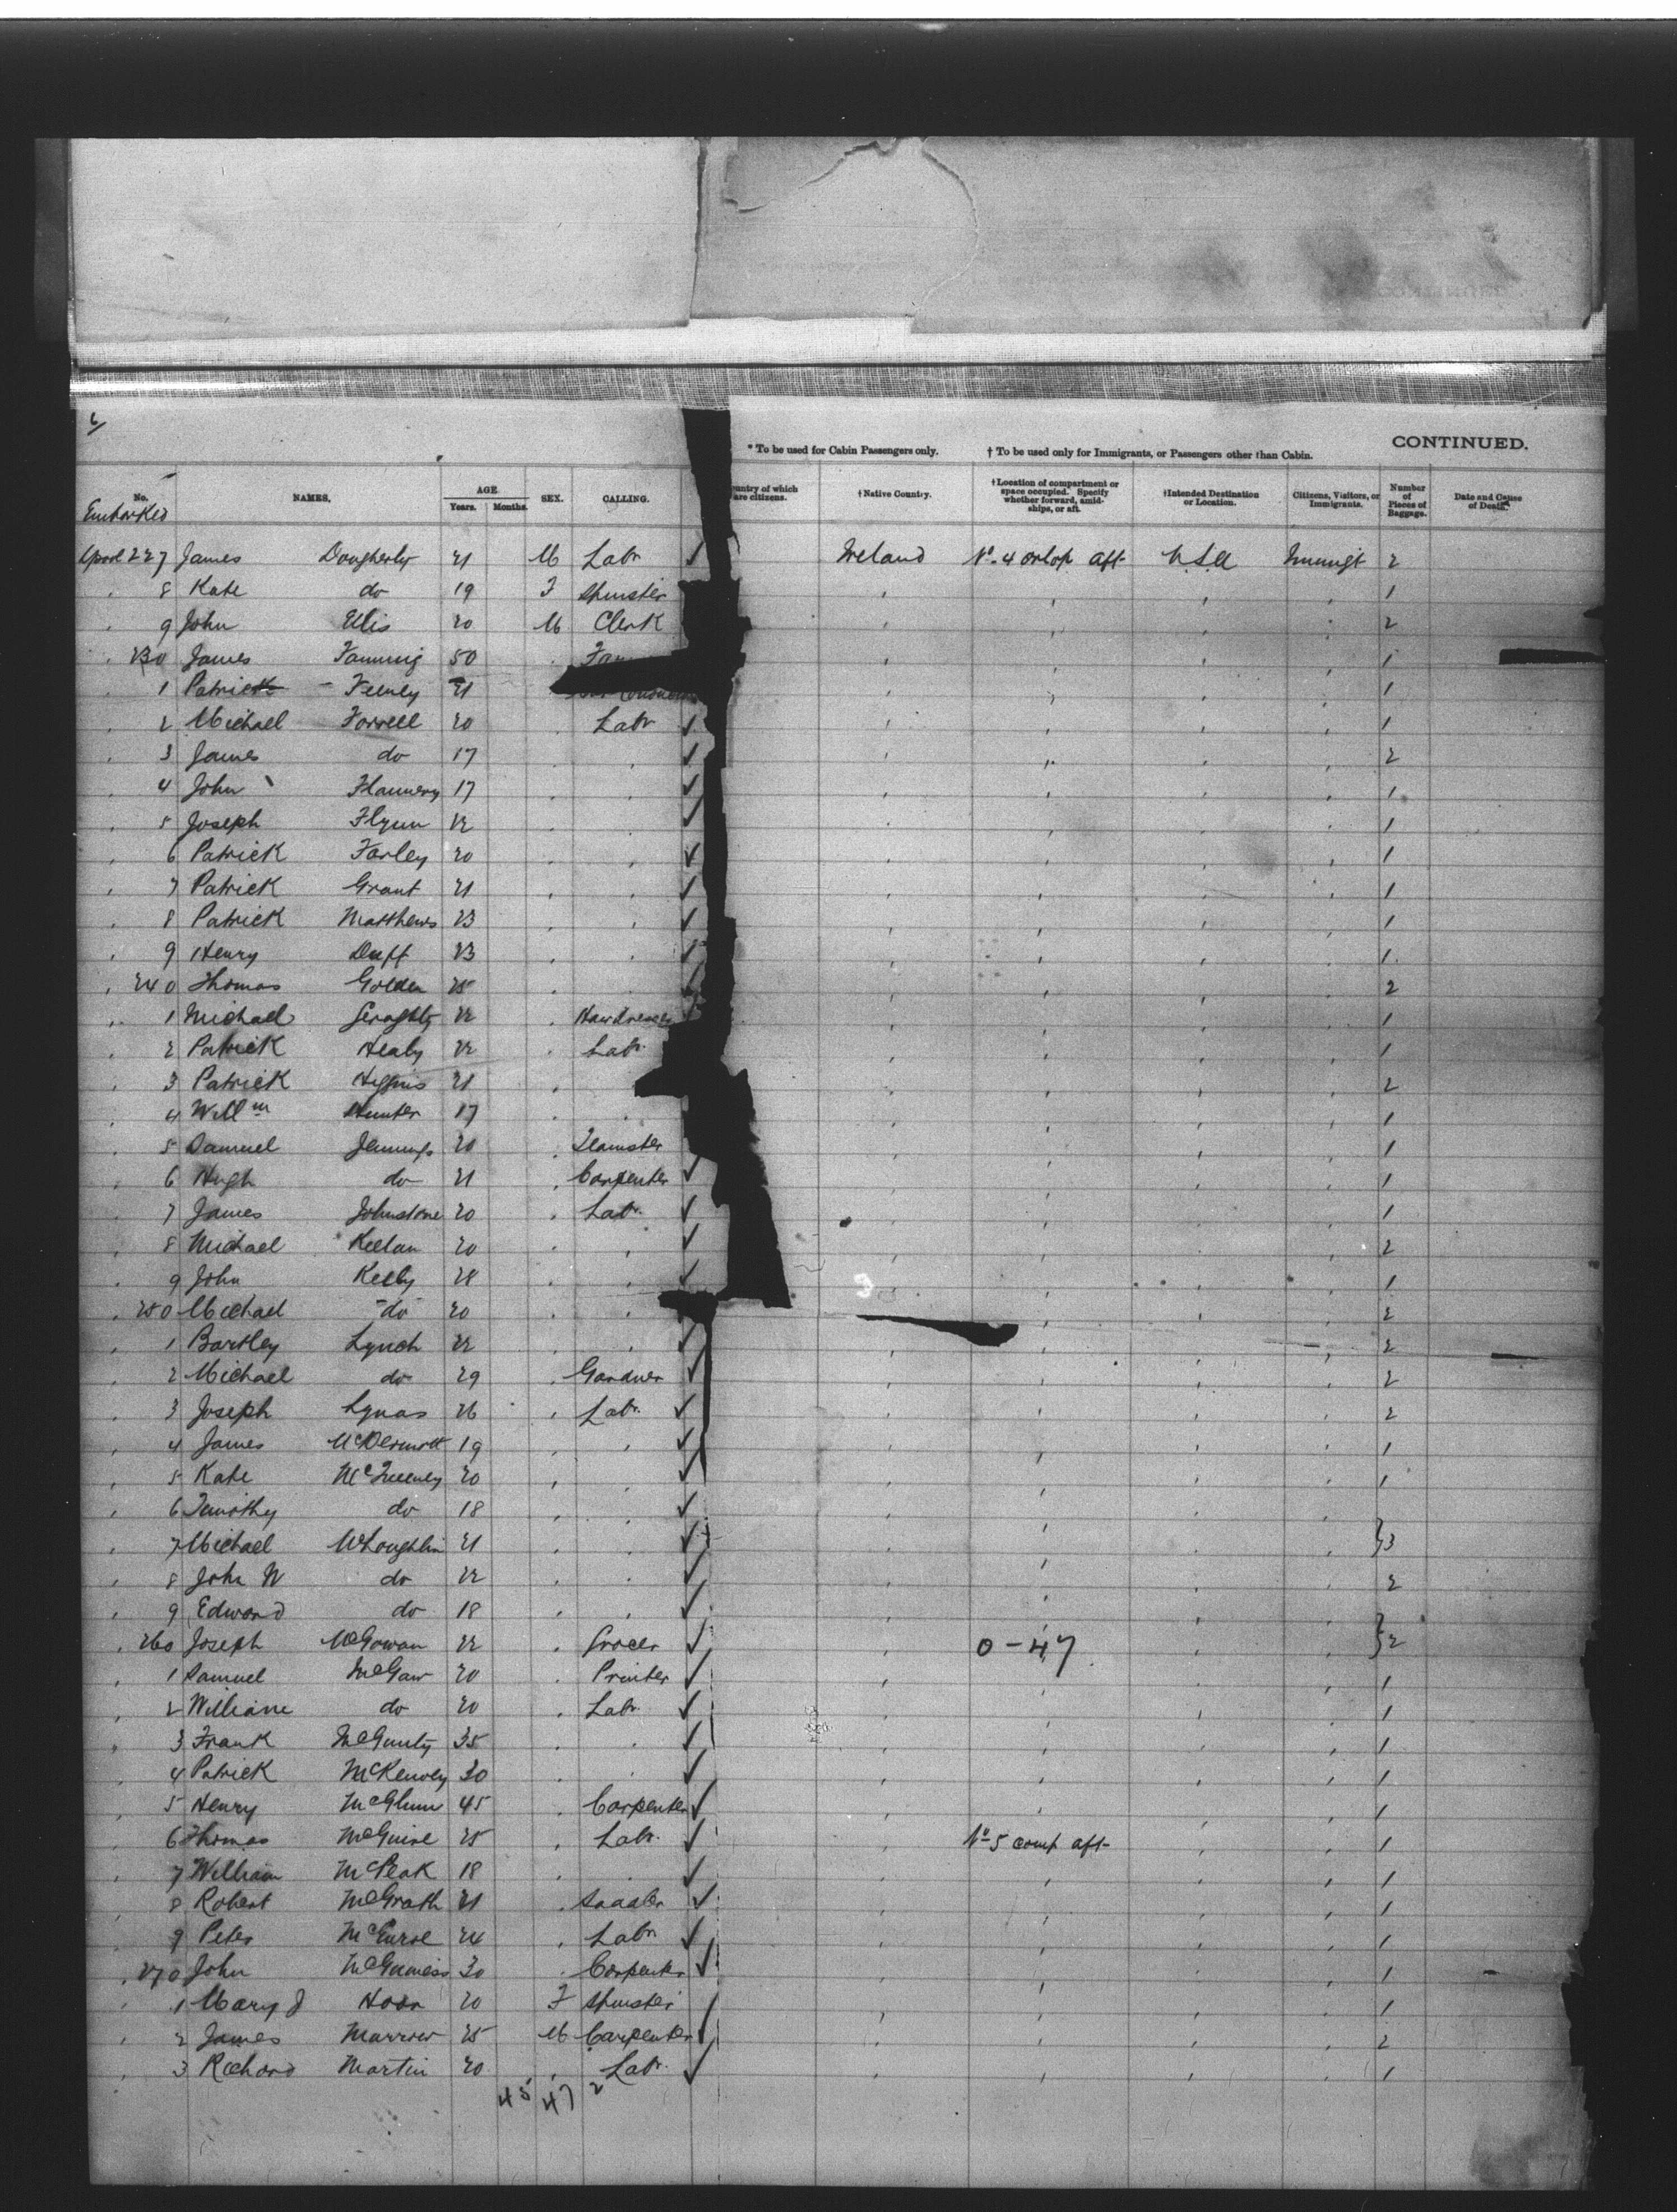 6/
* To be used for Cabin Passengers only. † To be used only for Immigrants, or Passengers other than Cabin. CONTINUED.
No. NAMES. AGE Years. Months. SEX. CALLING. ountry of which are citizens. †Native Country. †Location of compartment or space occupied. Specify whether forward, amidships, or aft. †Intended Destination or Location. Citizens, Visitors, or Immigrants. Number of Pieces of Baggage. Date and Cause of Death.
Embarked
Lpool 227 James Dougherty 21 M Labr ✓ Ireland No. 4 orlop aft U.S.A Immigt 2
8 Kate do 19 F Spinster 1
9 John Ellis 20 M Clerk 2
230 James Fanning 50 1
1 Patrick Feeney 21 1
2 Michael Forrell 20 Labr ✓ 1
3 James do 17 ✓ 2
4 John Flannery 17 ✓ 1
5 Joseph Flynn 22 ✓ 1
6 Patrick Farley 20 ✓ 1
7 Patrick Grant 21 ✓ 1
8 Patrick Matthews 23 ✓ 1
9 Henry Duff 23 ✓ 1
240 Thomas Golden 25 2
1 Michael Geraghty 22 1
2 Patrick Healy 22 Labr 1
3 Patrick Higgins 21 2
4 Willm Hunter 17 1
5 Samuel Jennings 20 Teamster 1
6 Hugh do 21 Carpenter ✓ 1
7 James Johnstone 20 Labr. ✓ 1
8 Michael Keelan 20 ✓ 2
9 John Kelly 28 ✓ 1
250 Michael do 20 2
1 Bartley Lynch 22 ✓ 2
2 Michael do 29 Gardner ✓ 2
3 Joseph Lynas 26 Labr. ✓ 2
4 James McDermott 19 ✓ 1
5 Kate McSweeney 20 ✓ 1
6 Timothy do 18 ✓
7 Michael McLoughlin 21 ✓ }3
8 John W do 22 ✓ 2
9 Edward do 18 ✓
260 Joseph McGowan 22 Grocer ✓ 0-47 }2
1 Samuel McGaw 20 Printer ✓ 1
2 William do 20 Labr. ✓ 1
3 Frank McGinty 35 ✓ 1
4 Patrick McKenvey 30 ✓ 1
5 Henry McGlinn 45 Carpenter ✓ 1
6 Thomas McGuire 25 Labr. ✓ No 5 comp aft 1
7 William McPeak 18 ✓ 1
8 Robert McGrath 21 Saddler ✓ 1
9 Peter 24 Labr ✓ 1
270 John McGuiness 30 Carpenter ✓ 1
1 Mary J 20 F Spinster 1
2 James Marrow 25 M Carpenter ✓ 2
3 Richard Martin 20 Labr. ✓ 1
45 47 2